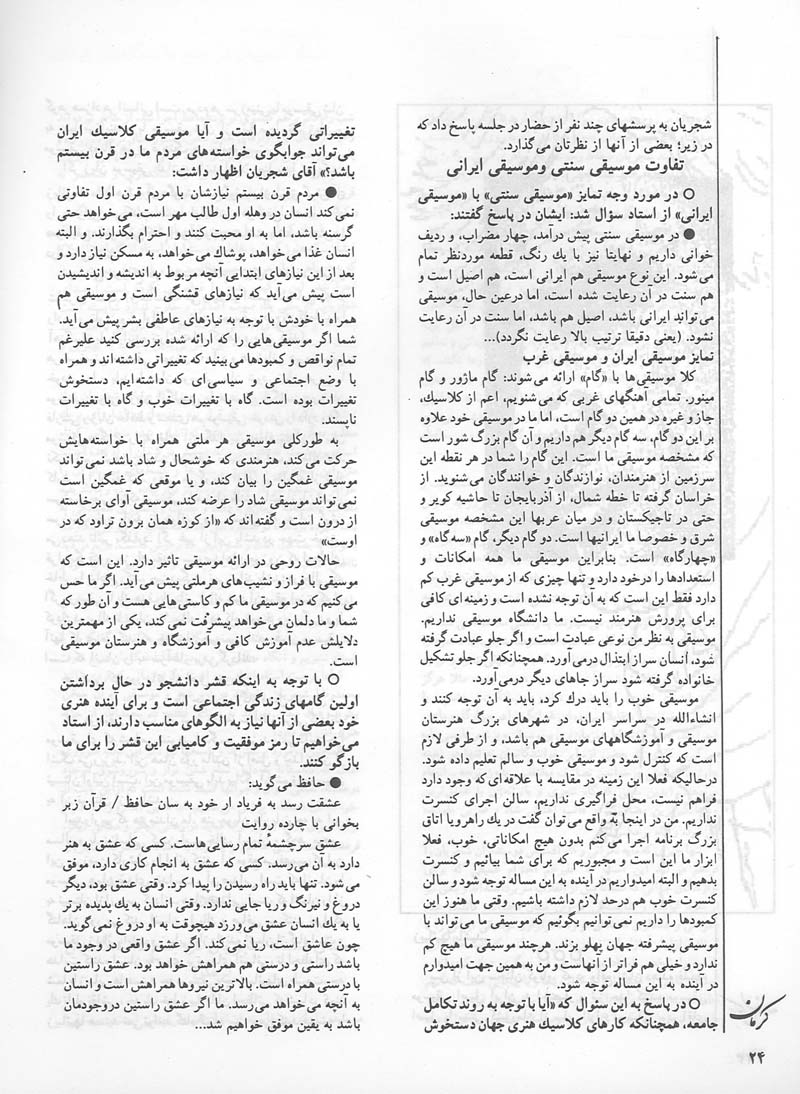 شجریان به پرسشهای چند نفر از حضار در جلسه پاسخ داد که
در زیر؛ بعضی از آنها از نظرتان می‌گذارد.
تفاوت موسیقی سنتی وموسیقی ایرانی
○ در مورد وجه تمایز «موسیقی سنتی» با «موسیقی
ایرانی» از استاد سؤال شد: ایشان در پاسخ گفتند:
● در موسیقی سنتی پیش درآمد، چهار مضراب، و ردیف
خوانی داریم و نهایتا نیز با یك رنگ، قطعه موردنظر تمام
می‌شود. این نوع موسیقی هم ایرانی است، هم اصیل است و
هم سنت در آن رعایت شده است، اما درعین حال، موسیقی
می‌تواند ایرانی باشد، اصیل هم باشد، اما سنت در آن رعایت
نشود. (یعنی دقیقا ترتیب بالا رعایت نگردد)...
تمایز موسیقی ایران و موسیقی غرب
کلا موسیقی‌ها با «گام» ارائه می‌شوند: گام ماژور و گام
مینور. تمامی آهنگهای غربی که می‌شنویم، اعم از کلاسیك،
جاز و غیره در همین دو گام است، اما ما در موسیقی خود علاوه
بر این دو گام، سه گام دیگر هم داریم و آن گام بزرگ شور است
که مشخصه موسیقی ما است. این گام را شما در هر نقطه این
سرزمین از هنرمندان، نوازندگان و خوانندگان می‌شنوید. از
خراسان گرفته تا خطه شمال، از آذربایجان تا حاشیه کویر و
حتی در تاجیکستان و در میان عربها این مشخصه موسیقی
شرق و خصوصا ما ایرانیها است. دو گام دیگر، گام «سه‌گاه» و
«چهارگاه» است. بنابراین موسیقی ما همه امکانات و
استعدادها را درخود دارد و تنها چیزی که از موسیقی غرب کم
دارد فقط این است که به آن توجه نشده است و زمینه‌ای کافی
برای پرورش هنرمند نیست. ما دانشگاه موسیقی نداریم.
موسیقی به نظر من نوعی عبادت است و اگر جلو عبادت گرفته
شود، انسان سراز ابتذال درمی‌آورد. همچنانکه اگر جلو تشکیل
خانواده گرفته شود سراز جاهای دیگر درمی‌آورد.
موسیقی خوب را باید درك کرد، باید به آن توجه کنند و
انشاءالله در سراسر ایران، در شهرهای بزرگ هنرستان
موسیقی و آموزشگاههای موسیقی هم باشد، و از طرفی لازم
است که کنترل شود و موسیقی خوب و سالم تعلیم داده شود.
درحالیکه فعلا این زمینه در مقایسه با علاقه‌ای که وجود دارد
فراهم نیست، محل فراگیری نداریم، سالن اجرای کنسرت
نداریم. من در اینجا به واقع می‌توان گفت در یك راهرو یا اتاق
بزرگ برنامه اجرا می‌کنم بدون هیچ امکاناتی، خوب، فعلا
ابزار ما این است و مجبوریم که برای شما بیائیم و کنسرت
بدهیم و البته امیدواریم در آینده به این مساله توجه شود و سالن
کنسرت خوب هم درحد لازم داشته باشیم. وقتی ما هنوز این
کمبودها را داریم نمی‌توانیم بگوئیم که موسیقی ما می‌تواند با
موسیقی پیشرفته جهان پهلو بزند. هرچند موسیقی ما هیچ کم
ندارد و خیلی هم فراتر از آنهاست و من به همین جهت امیدوارم
در آینده به این مساله توجه شود.
○ در پاسخ به این سئوال که «آیا با توجه به روند تکامل
جامعه، همچنانکه کارهای کلاسیك هنری جهان دستخوش
تغییراتی گردیده است و آیا موسیقی کلاسیك ایران
می‌تواند جوابگوی خواسته‌های مردم ما در قرن بیستم
باشد؟» آقای شجریان اظهار داشت:
● مردم قرن بیستم نیازشان با مردم قرن اول تفاوتی
نمی‌کند انسان در وهله اول طالب مهر است، می‌خواهد حتی
گرسنه باشد، اما به او محبت کنند و احترام بگذارند. و البته
انسان غذا می‌خواهد، پوشاك می‌خواهد، به مسکن نیاز دارد و
بعد از این نیازهای ابتدایی آنچه مربوط به اندیشه و اندیشیدن
است پیش می‌آید که نیازهای قشنگی است و موسیقی هم
همراه با خودش با توجه به نیازهای عاطفی بشر پیش می‌آید.
شما اگر موسیقی‌هایی را که ارائه شده بررسی کنید علیرغم
تمام نواقص و کمبودها می‌بینید که تغییراتی داشته‌اند و همراه
با وضع اجتماعی و سیاسی‌ای که داشته‌ایم، دستخوش
تغییرات بوده است. گاه با تغییرات خوب و گاه با تغییرات
ناپسند.
به طورکلی موسیقی هر ملتی همراه با خواسته‌هایش
حرکت می‌کند، هنرمندی که خوشحال و شاد باشد نمی‌تواند
موسیقی غمگین را بیان کند، و یا موقعی که غمگین است
نمی‌تواند موسیقی شاد را عرضه کند، موسیقی آوای برخاسته
از درون است و گفته‌اند که «از کوزه همان برون تراود که در
اوست»
حالات روحی در ارائه موسیقی تاثیر دارد. این است که
موسیقی با فراز و نشیب‌های هرملتی پیش می‌آید. اگر ما حس
می‌کنیم که در موسیقی ما کم و کاستی‌هایی هست و آن طور که
شما و ما دلمان می‌خواهد پیشرفت نمی‌کند، یکی از مهمترین
دلایلش عدم آموزش کافی و آموزشگاه و هنرستان موسیقی
است.
○ با توجه به اینکه قشر دانشجو در حال برداشتن
اولین گامهای زندگی اجتماعی است و برای آینده هنری
خود بعضی از آنها نیاز به الگوهای مناسب دارند، از استاد
می‌خواهیم تا رمز موفقیت و کامیابی این قشر را برای ما
بازگو کنند.
● حافظ می‌گوید:
عشقت رسد به فریاد ار خود به سان حافظ / قرآن زبر
بخوانی با چارده روایت
عشق سرچشمهٔ تمام رسایی‌هاست. کسی که عشق به هنر
دارد به آن می‌رسد. کسی که عشق به انجام کاری دارد، موفق
می‌شود. تنها باید راه رسیدن را پیدا کرد. وقتی عشق بود، دیگر
دروغ و نیرنگ و ریا جایی ندارد. وقتی انسان به یك پدیده برتر
یا به یك انسان عشق می‌ورزد هیچوقت به او دروغ نمی‌گوید.
چون عاشق است، ریا نمی‌کند. اگر عشق واقعی در وجود ما
باشد راستی و درستی هم همراهش خواهد بود. عشق راستین
با درستی همراه است. بالاترین نیروها همراهش است و انسان
به آنچه می‌خواهد می‌رسد. ما اگر عشق راستین دروجودمان
باشد به یقین موفق خواهیم شد...
کرمان
۲۴